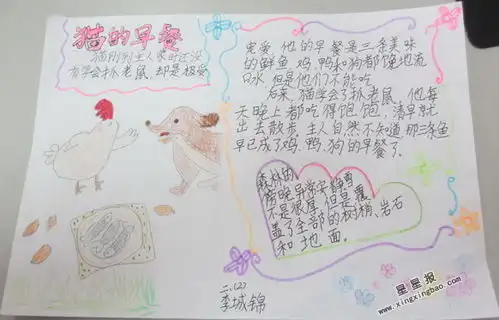 猫的早餐
猫刚到主人家时还没
有学会扒老鼠,却是极受
宠爱,他的早餐是三条美味
的鲜鱼,鸡,鸭和狗都馋地流
口水,但是他们不能吃
后来,猫学会了扒老鼠,他每
天晚上都吃得饱饱,清早就
出去散步。主人自然不知道那三条鱼
早已成了鸡、鸭、狗的早餐了。
森林的
傍晚早常宁静雪
不是很厚,但是覆
盖了全部的树梢、岩石
和地面。
二、(2)
李城锦
星星报
www.xingxingbao.com